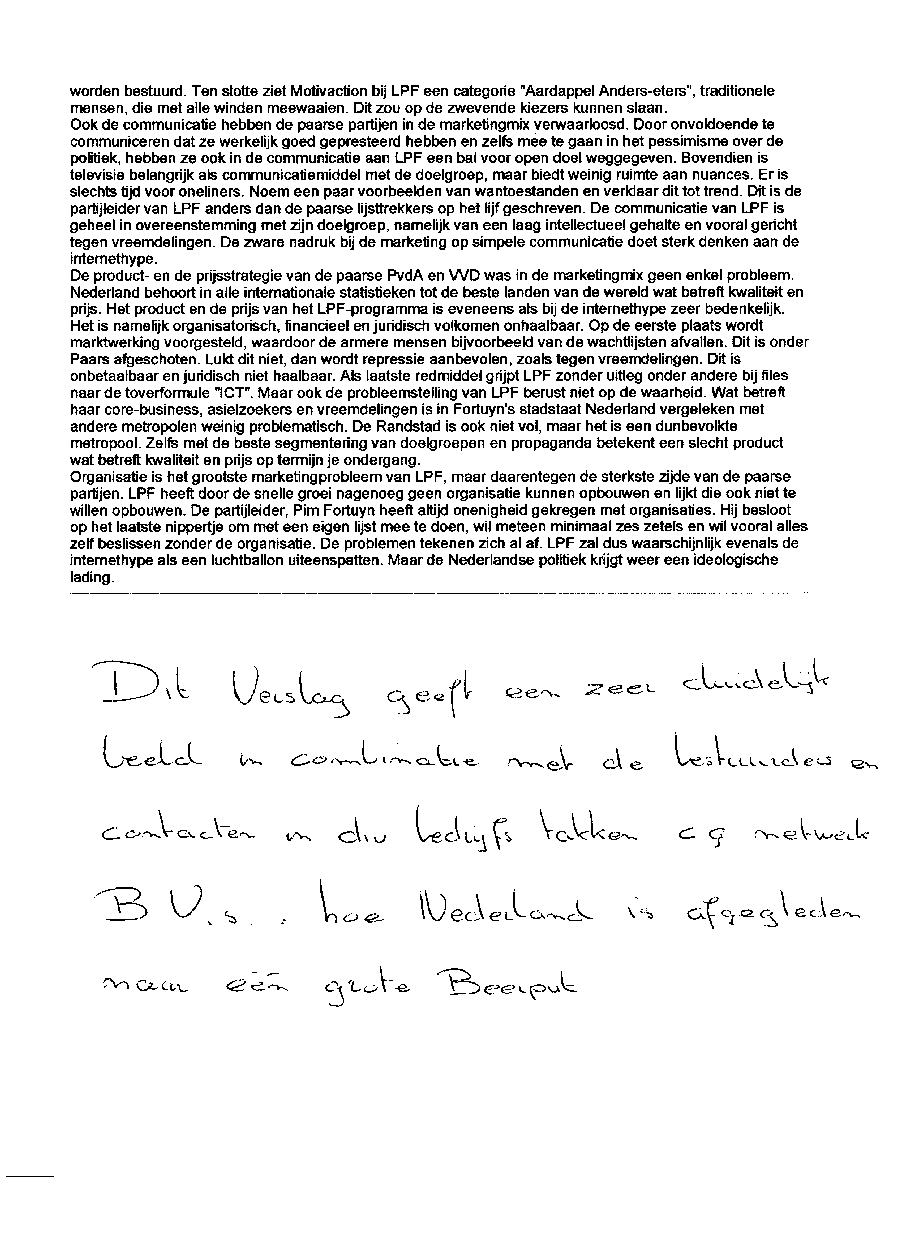 worden bestuurd. Ten slotte ziet Motivaction bij LPF een categorie "Aardappel Anders-eters", traditionele
mensen, die met alle winden meewaaien. Dit zou op de zwevende kiezers kunnen slaan.
Ook de communicatie hebben de paarse partijen in de marketingmix verwaarloosd. Door onvoldoende te
communiceren dat ze werkelijk goed gepresteerd hebben en zelfs mee te gaan in het pessimisme over de
politiek, hebben ze ook in de communicatie aan LPF een bal voor open doel weggegeven. Bovendien is
televisie belangrijk als communicatiemiddel met de doelgroep, maar biedt weinig ruimte aan nuances. Er is
slechts tijd voor oneliners. Noem een paar voorbeelden van wantoestanden en verklaar dit tot trend. Dit is de
partijleider van LPF anders dan de paarse lijsttrekkers op het lijf geschreven. De communicatie van LPF is
geheel in overeenstemming met zijn doelgroep, namelijk van een laag intellectueel gehalte en vooral gericht
tegen vreemdelingen. De zware nadruk bij de marketing op simpele communicatie doet sterk denken aan de
internethype.
De product- en de prijsstrategie van de paarse PvdA en VVD was in de marketingmix geen enkel probleem.
Nederland behoort in alle internationale statistieken tot de beste landen van de wereld wat betreft kwaliteit en
prijs. Het product en de prijs van het LPF-programma is eveneens als bij de internethype zeer bedenkelijk.
Het is namelijk organisatorisch, financieel en juridisch volkomen onhaalbaar. Op de eerste plaats wordt
marktwerking voorgesteld, waardoor de armere mensen bijvoorbeeld van de wachtlijsten afvallen. Dit is onder
Paars afgeschoten. Lukt dit niet, dan wordt repressie aanbevolen, zoals tegen vreemdelingen. Dit is
onbetaalbaar en juridisch niet haalbaar. Als laatste redmiddel grijpt LPF zonder uitleg onder andere bij files
naar de toverformule "ICT". Maar ook de probleemstelling van LPF berust niet op de waarheid. Wat betreft
haar core-business, asielzoekers en vreemdelingen is in Fortuyn's stadstaat Nederland vergeleken met
andere metropolen weinig problematisch. De Randstad is ook niet vol, maar het is een dunbevolkte
metropool. Zelfs met de beste segmentering van doelgroepen en propaganda betekent een slecht product
wat betreft kwaliteit en prijs op termijn je ondergang.
Organisatie is het grootste marketingprobleem van LPF, maar daarentegen de sterkste zijde van de paarse
partijen. LPF heeft door de snelle groei nagenoeg geen organisatie kunnen opbouwen en lijkt die ook niet te
willen opbouwen. De partijleider, Pim Fortuyn heeft altijd onenigheid gekregen met organisaties. Hij besloot
op het laatste nippertje om met een eigen lijst mee te doen, wil meteen minimaal zes zetels en wil vooral alles
zelf beslissen zonder de organisatie. De problemen tekenen zich al af. LPF zal dus waarschijnlijk evenals de
internethype als een luchtballon uiteenspatten. Maar de Nederlandse politiek krijgt weer een ideologische
lading.
Dit Verslag geeft een zeer duidelijk
beeld in combinatie met de bestuurders en
contacten in div bedrijfs takken c q netwerk
B V.s.. hoe Nederland is afgegleden
naar één grote Beerput